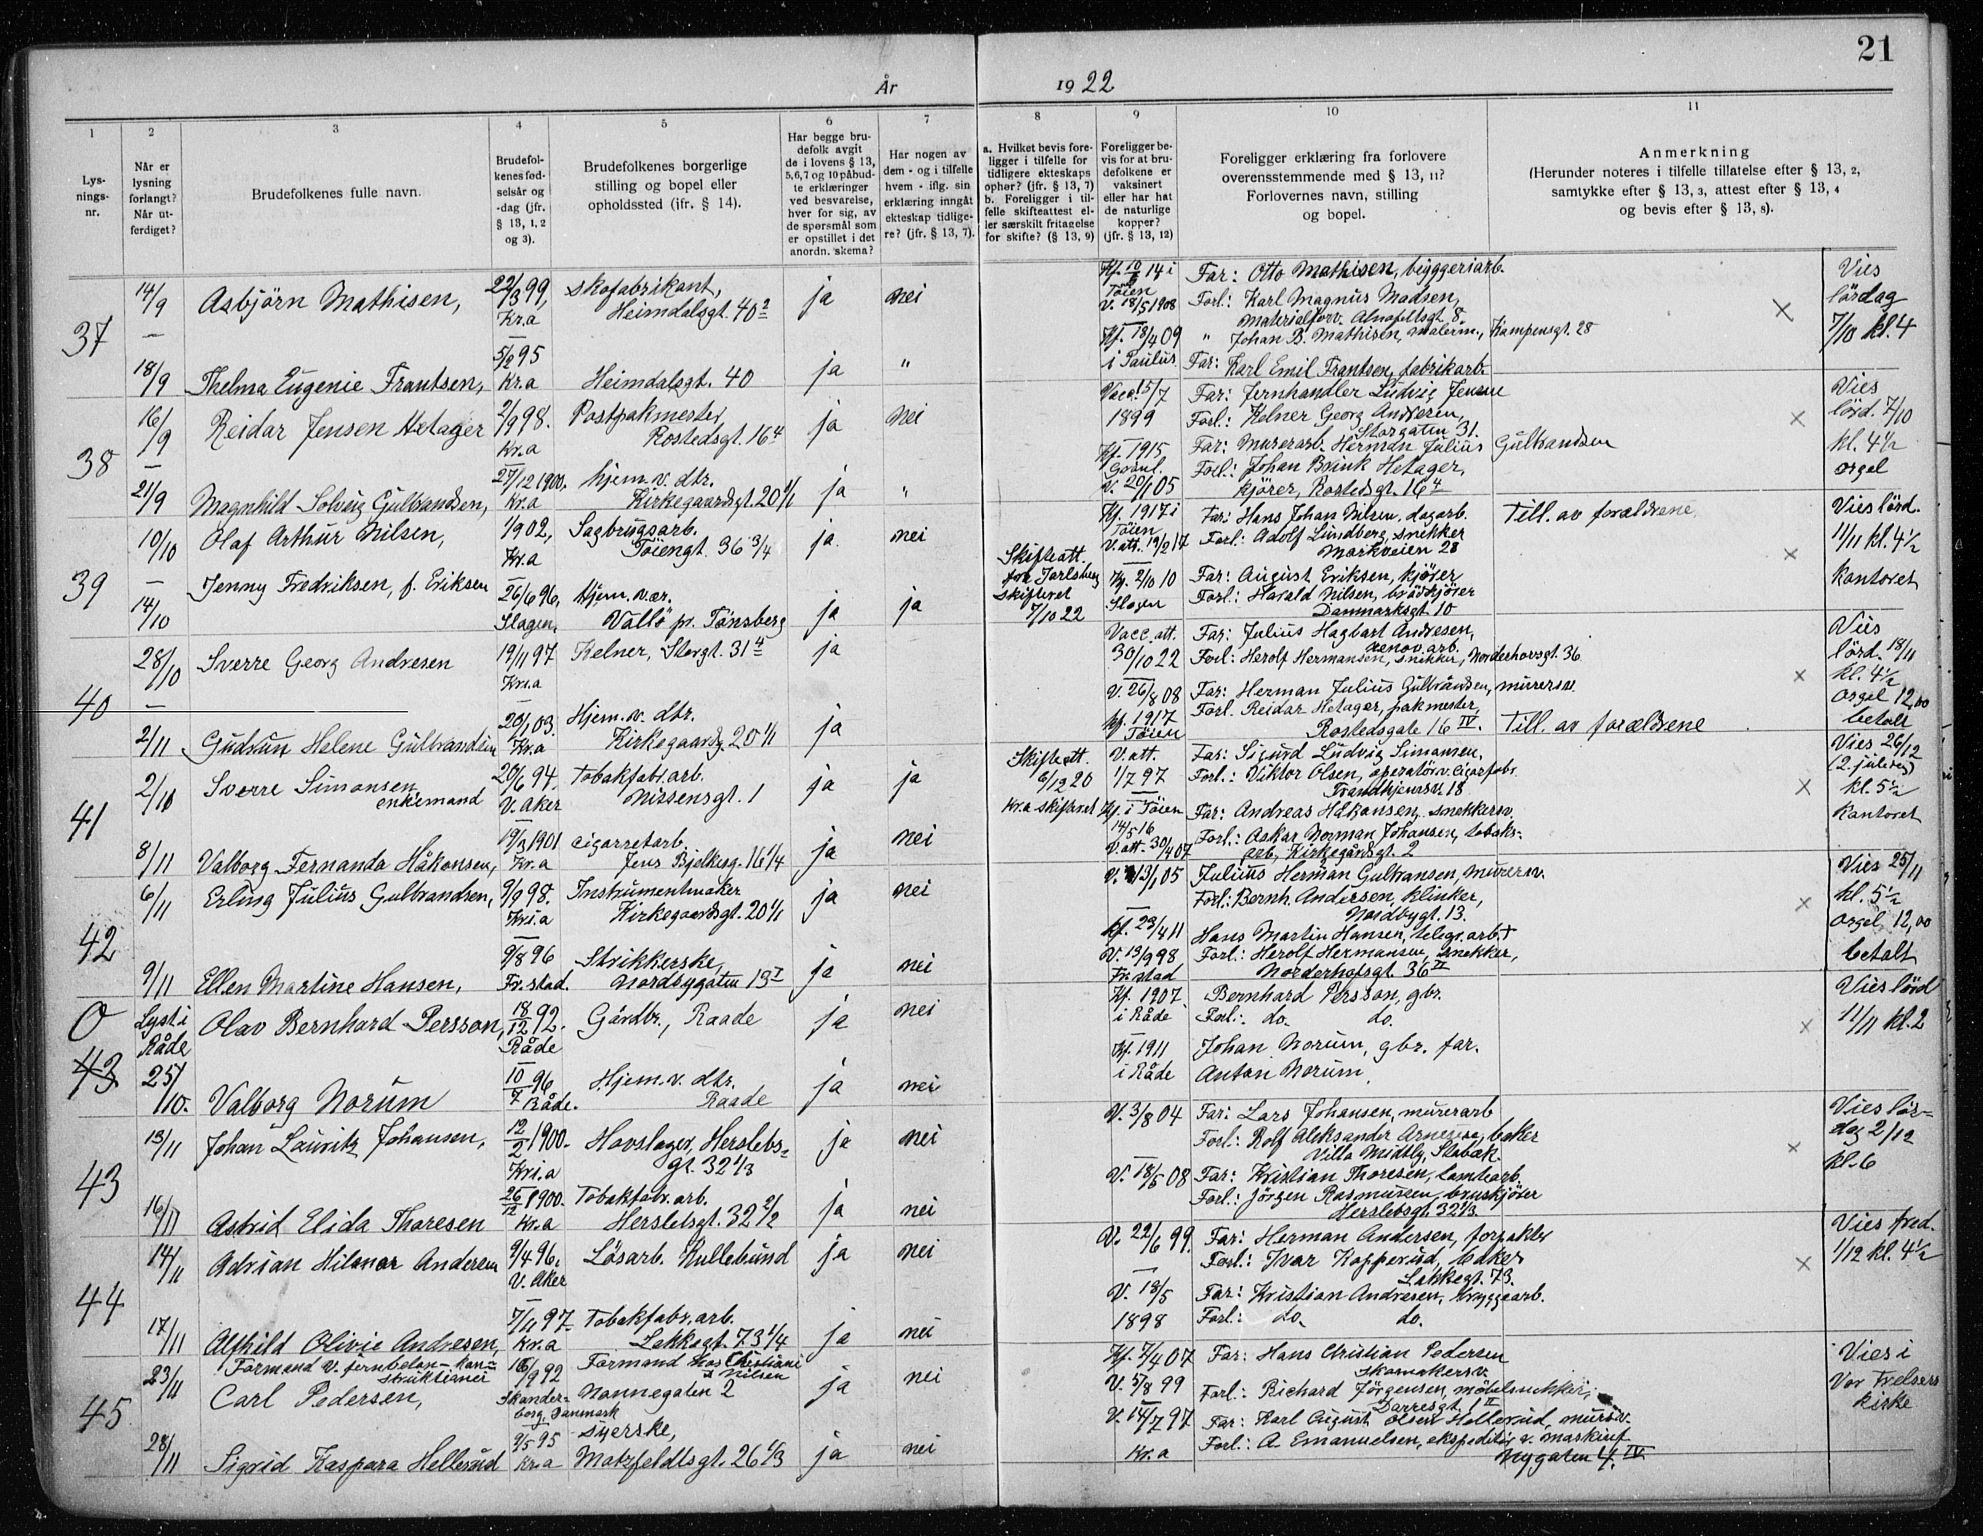 21
År 1922
1 2 3 4 5 6 7 8 9 10 11
Lys-
nings-
nr.
Når er
lysning
forlangt?
Når ut-
ferdiget?
Brudefolkenes fulle navn.
Brudefol-
kenes fød-
selsår og
-dag (jfr.
§ 13, 1, 2
og 3).
Brudefolkenes borgerlige
stilling og bopel eller
opholdssted (ifr. § 14).
Har begge bru-
defolk avgit
de i lovens § 13,
5,6,7 og 10 påbud-
te erklæringer
ved besvarelse,
hver for sig, av
de spørsmål som
er opstillet i det
anordn. skema?
Har nogen av
dem - og i tilfelle
hvem - iflg. sin
erklæring inngåt
ekteskap tidlige-
re? (jfr. § 13, 7).
a. Hvilket bevis fore-
ligger i tilfelle for
tidligere ekteskaps
ophør? (jfr. § 13, 7)
b. Foreligger i til-
felle skifteattest el-
ler særskilt fritagelse
for skifte? (§ 13, 9)
Foreligger be-
vis for at bru-
defolkene er
vaksinert
eller har hat
de naturlige
kopper?
(jfr. § 13, 12)
Foreligger erklæring fra forlovere
overensstemmende med § 13, 11?
Forlovernes navn, stilling
og bopel.
Anmerkning
(Herunder noteres i tilfelle tillatelse efter § 13, 2,
samtykke efter § 13, 3, attest efter § 13, 4
og bevis efter § 13, 8).
37
14/9
Asbjörn Mathisen,
22/3 99,
Kr.a
Skofabrikant,
Heimdalsgt. 40 2
ja
nei
Kf. 10/5 14 i
Töien
V. 18/5 1908
Far: Otto Mathisen, byggeriarb.
Forl.: Karl Magnus Madsen,
Materialforv. Alnafeltgt. 8
" Johan B. Mathisen, malerm., Kampensgt. 28
Vies
lördag
7/10 kl. 4
18/9
Thelma Eugenie Frantsen,
5/2 95
Kr.a
Heimdalsgt. 40
ja
"
Kf. 18/4 09
i Paulus
Far: Karl Emil Frantsen, fabrikarb.
38
16/9
Reidar Jensen Hetager
2/9 98.
Kr.a
Postpakmester
Rostedsgt. 16 4
ja
nei
Vacc. 15/7
1899
Far: Jernhandler Ludvig Jensen
Forl.: Kelner Georg Andresen,
Storgaten 31.
Vies
lörd. 7/10
kl. 4½
orgel
21/9
Magnhild Solveig Gulbrandsen,
27/12 1900,
Kr.a
hjem. v. dtr.
Kirkegaardsgt. 20 II
ja
"
Kf. 1915
Grönl.
V. 20/1 05
Far: Murerarb. Herman Julius Gulbrandsen
Forl.: Johan Brink Hetager,
kjörer, Rostedsgt. 16 4
39
10/10
Olaf Arthur Nilsen,
1/9 02,
Kr.a
Sagbrugsarb.
Töiengt. 36 3/4
ja.
nei
Kf. 1917 i
Töien
V. att. 19/2 17
Far: Hans Johan Nilsen, dagarb.
Forl.: Adolf Lundberg, snekker
Markveien 28
Till. av forældrene
Vies lörd.
11/11 kl. 4½
kontoret
14/10
Jenny Fredriksen, f. Eriksen
26/6 96,
Slagen,
Hjem. vær.
Vallö pr. Tönsberg
ja
ja
Skifteatt.
fra Jarlsberg
skifteret
7/10 22
Kf. 2/10 10
Slagen
Far: August Eriksen, kjörer
Forl.: Harald Nilsen, brödkjörer
Danmarksgt. 10
40
28/10
Sverre Georg Andresen
19/11 97
Kri.a
Kelner, Storgt. 31 4
ja
Vacc. att.
30/10 22
Far: Julius Hagbart Andresen,
renov. arb.
Forl: Herolf Hermansen, snekker, Norderhovsgt. 36
Vies
lörd. 18/11
kl. 4½
Orgel 12,00
betalt
2/11
Gudrun Helene Gulbrandsen
20/1 03.
Kr.a
Hjem. v. dtr.
Kirkegaardsg. 20 II
ja
V. 26/8 08
kf. 1917
Töien
Far: Herman Julius Gulbrandsen, murersv.
Forl. Reidar Hetager, pakmester,
Rostedsgate 16 IV.
Till. av forældrene
41
2/10
Sverre Simonsen
enkemand
20/6 94.
V. Aker
Tobakfabr. arb.
Nissensgt. 1
ja
ja
Skifteatt.
6/12 20
Kr.a skifteret
V. att.
1/7 97
Far: Sigurd Ludvig Simonsen,
Forl.: Viktor Olsen, operatör v. Cigarfabr.
Trondhjemsv. 18
Vies 26/12
(2. juledag)
kl. 5½
kontoret
8/11
Valborg Fernanda Håkonsen,
19/3 1901
Kr.a
cigarretarb.
Jens Bjelkesg. 16 I/4
ja
nei
Kf. i Töien
14/5 16
V. att. 30/4 07
Far: Andreas Håkonsen, snekkersv.
Forl.: Oskar Norman Johansen, tobaks-
arb, Kirkegårdsgt. 2
42
6/11
Erling Julius Gulbrandsen,
9/9 98.
Kri.a
Instrumentmaker
Kirkegaardsgt. 20 II
ja
nei
V. 13/1 05
Julius Herman Gulbransen, murersv.
Forl: Bernh. Andersen, klinker,
Nordbygt. 13.
Vies 25/11
kl. 5½
Orgel 12,00
betalt
9/11
Ellen Martine Hansen,
9/8 96
Fr.stad.
Strikkerske,
Nordbygaten 13 I
ja
nei
kf. 23/4 11
V. 13/9 98
Fr.stad
Hans Martin Hansen, telegr. arb. +
Forl: Herolf Hermansen, snekker,
Norderhofsgt 36 II
0
43
Lyst i
Råde
25/10.
Olav Bernhard Persson,
18/12 92.
Råde
Gårdbr., Raade
ja
nei
Kf. 1907.
i Råde
Bernhard Persson, gbr.
Forl: do. do.
Vies lörd
11/11 kl. 2
Valborg Norum
10/7 96
Råde.
Hjem. v. dtr.
Raade
ja
nei
Kf. 1911
i Råde
Johan Norum, gbr. far.
Anton Norum
43
13/11
Johan Lauritz Johansen,
12/2 1900.
Kri.a
Hovslager, Herslebs-
gt. 32 I/3
ja
nei
V. 3/8 04
Far: Lars Johansen, murerarb
Forl: Rolf Aleksander Arnesen, baker
Villa Midtly, Stabæk.
Vies lör-
dag 2/12
kl. 6
16/11
Astrid Elida Thoresen
26/12 1900.
Kr.a
Tobakfabr. arb.
Herslebsgt. 32 2/2
ja
nei
V. 18/5 08
Far: Kristian Thoresen, tomtearb.
Forl: Jörgen Rasmussen, bruskjörer
Herslebsgt. 32 I/3
44
14/11
Adrian Hilmar Andersen
9/4 96.
V. Aker
Lösarb. Kullebund
ja
nei
V. 22/6 99.
Far: Herman Andersen, forpakter
Forl.: Ivar Kopperud, baker
Lakkegt. 73.
Vies fred.
1/12 kl. 4½
17/11
Alfhild Olivie Andresen,
7/11 97.
Kr.a
Tobakfabr. arb.
Lakkegt. 73 I/4
ja
nei
V. 18/5
1898
Far: Kristian Andresen, bryggearb.
Forl: do. do.
45
23/11
Formand v. jernbeton-kon-
struktioner
Carl Pedersen,
16/9 92
Skander-
borg, Danmark
Formand hos Christiani
& Nilsen
Nannegaten 2
ja
nei
Kf. 7/4 07
V. 5/8 99
Far: Hans Christian Pedersen
skomakersv.
Forl: Richard Jörgensen, möbelsnekker,
Darresgt. 1 II
Vies i
Vor Frelsers
kirke
28/11
Sigrid Kaspara Hellerud
9/5 95
Kr.a
syerske,
Motzfeldtsgt. 26 I/3
ja
nei
V. 14/7 97
Kr.a
Far: Karl August Olsen Hellerud, mursv.
Forl.: A. Emanuelsen, ekspeditör v. maskinf.
Nygaten 4. IV